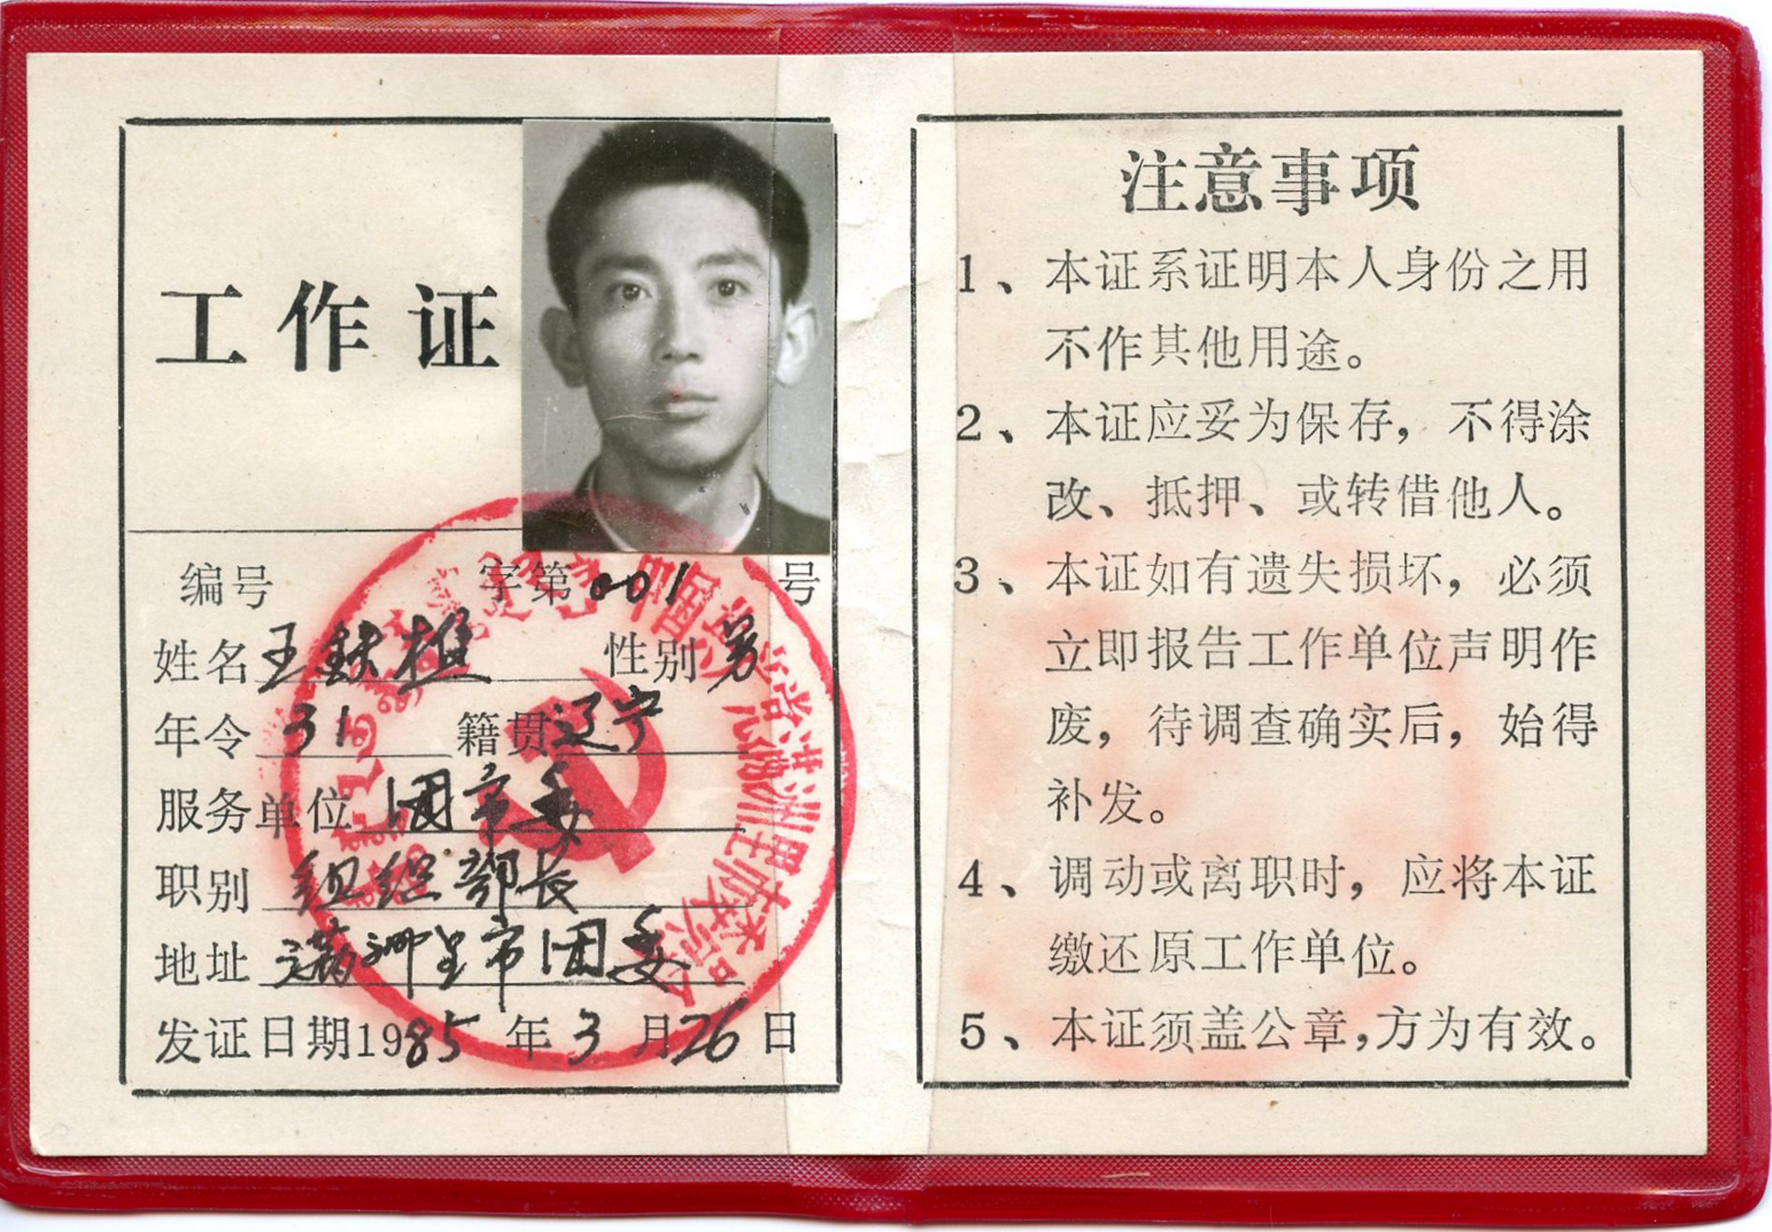 工作证
编号 字第001号
姓名王铁樵 性别男
年令31 籍贯辽宁
服务单位团市委
职别组织部长
地址满洲里市团委
发证日期1985年3月26日
中国共产党满洲里市委员会
注意事项
1、本证系证明本人身份之用
不作其他用途。
2、本证应妥为保存，不得涂
改、抵押、或转借他人。
3、本证如有遗失损坏，必须
立即报告工作单位声明作
废，待调查确实后，始得
补发。
4、调动或离职时，应将本证
缴还原工作单位。
5、本证须盖公章，方为有效。